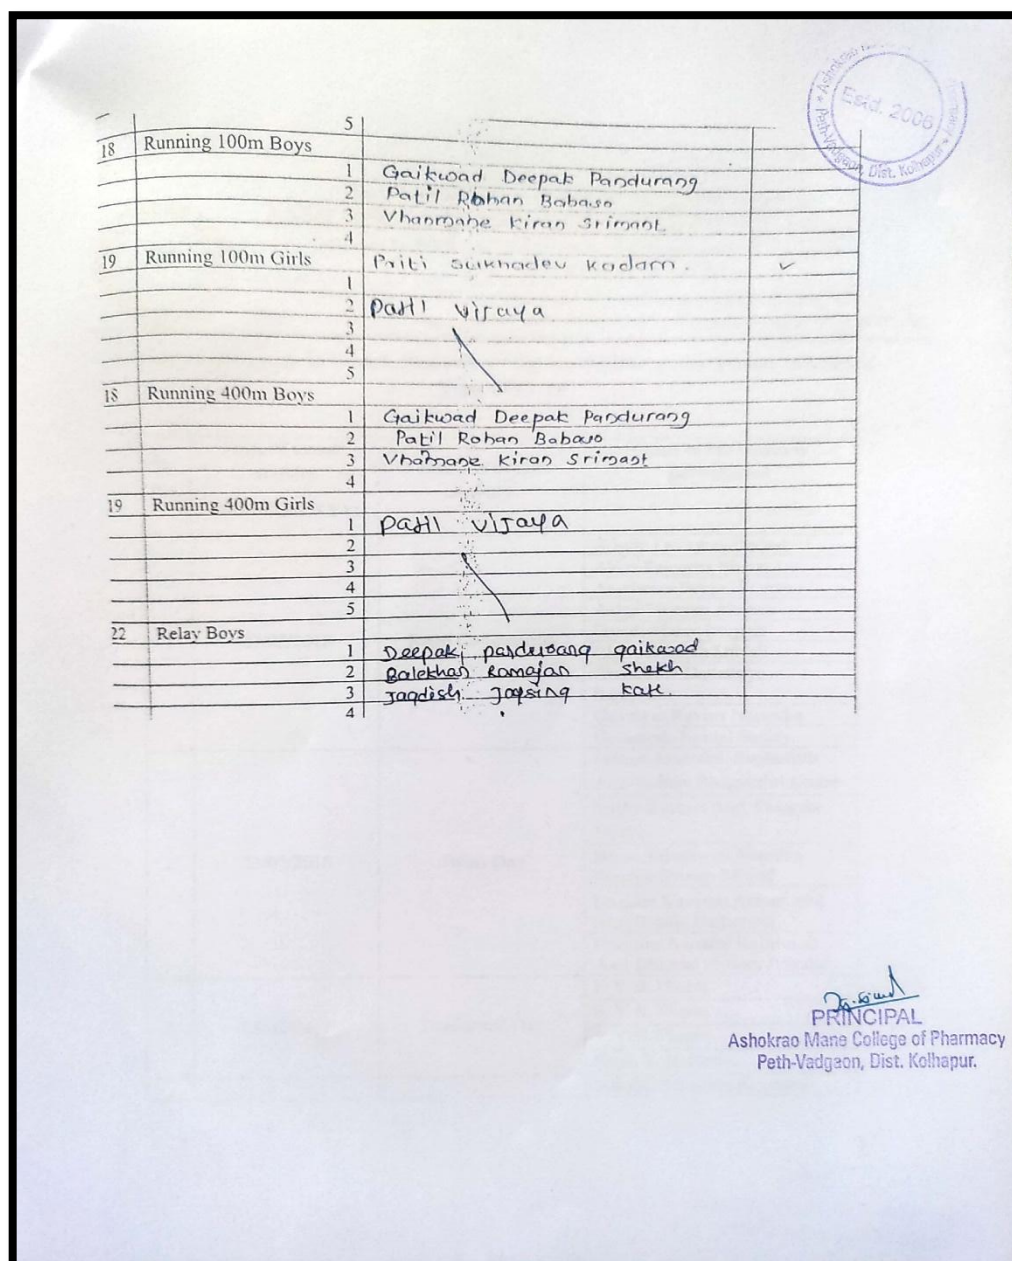 Estd. 2006
Peth-Vadgaon, Dist. Kolhapur
5
18 Running 100m Boys
1 Gaikwad Deepak Pandurang
2 Patil Rohan Babaso
3 Vhanmane Kiran Srimant
4
19 Running 100m Girls Priti Sukhadev Kadam.
1
2 Patil Vijaya
3
4
5
18 Running 400m Boys
1 Gaikwad Deepak Pandurang
2 Patil Rohan Babaso
3 Vhanmane Kiran Srimant
4
19 Running 400m Girls
1 Patil Vijaya
2
3
4
5
22 Relay Boys
1 Deepak pandurang gaikwad
2 Balekhan Ramajan Shekh
3 Jagdish
4
PRINCIPAL
Ashokrao Mane College of Pharmacy
Peth-Vadgaon, Dist. Kolhapur.